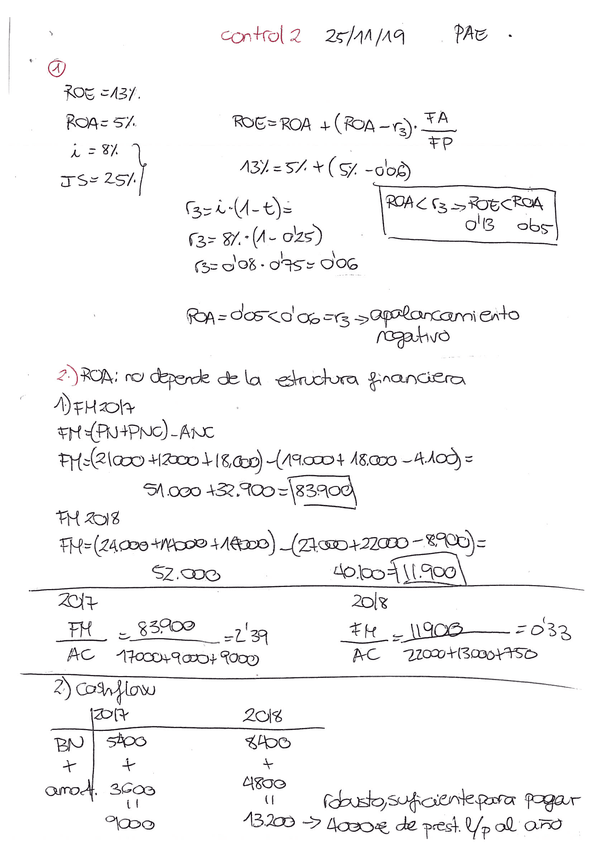 control 2 25/11/19 PAE .
①
ROE = 13%.
ROA = 5% ROE = ROA + (ROA - r3) · FA/FP
i = 8%
IS = 25% 13% = 5% + (5% - 0'06)
r3 = i · (1 - t) = ROA < r3 → ROE < ROA
r3 = 8% · (1 - 0'25) 0'13 0'05
r3 = 0'08 · 0'75 = 0'06
ROA = 0'05 < 0'06 = r3 → apalancamiento
negativo
2.) ROA: no depende de la estructura financiera
1) FM 2017
FM = (PN + PNC) - ANC
FM = (21000 + 12000 + 18.000) - (19.000 + 18.000 - 4.100) =
51.000 + 32.900 = 83.900
FM 2018
FM = (24.000 + 14000 + 14000) - (27.000 + 22000 - 8.900) =
52.000 40.100 = 11.900
2017 2018
FM/AC = 83.900/17000+9000+9000 = 2'39 FM/AC = 11900/22000+13.000+750 = 0'33
2) Cashflow
2017 2018
BN 5400 8400
+ + +
amort. 3600 4800
= =
robusto, suficiente para pagar
9000 13.200 → 4000€ de prest. l/p al año